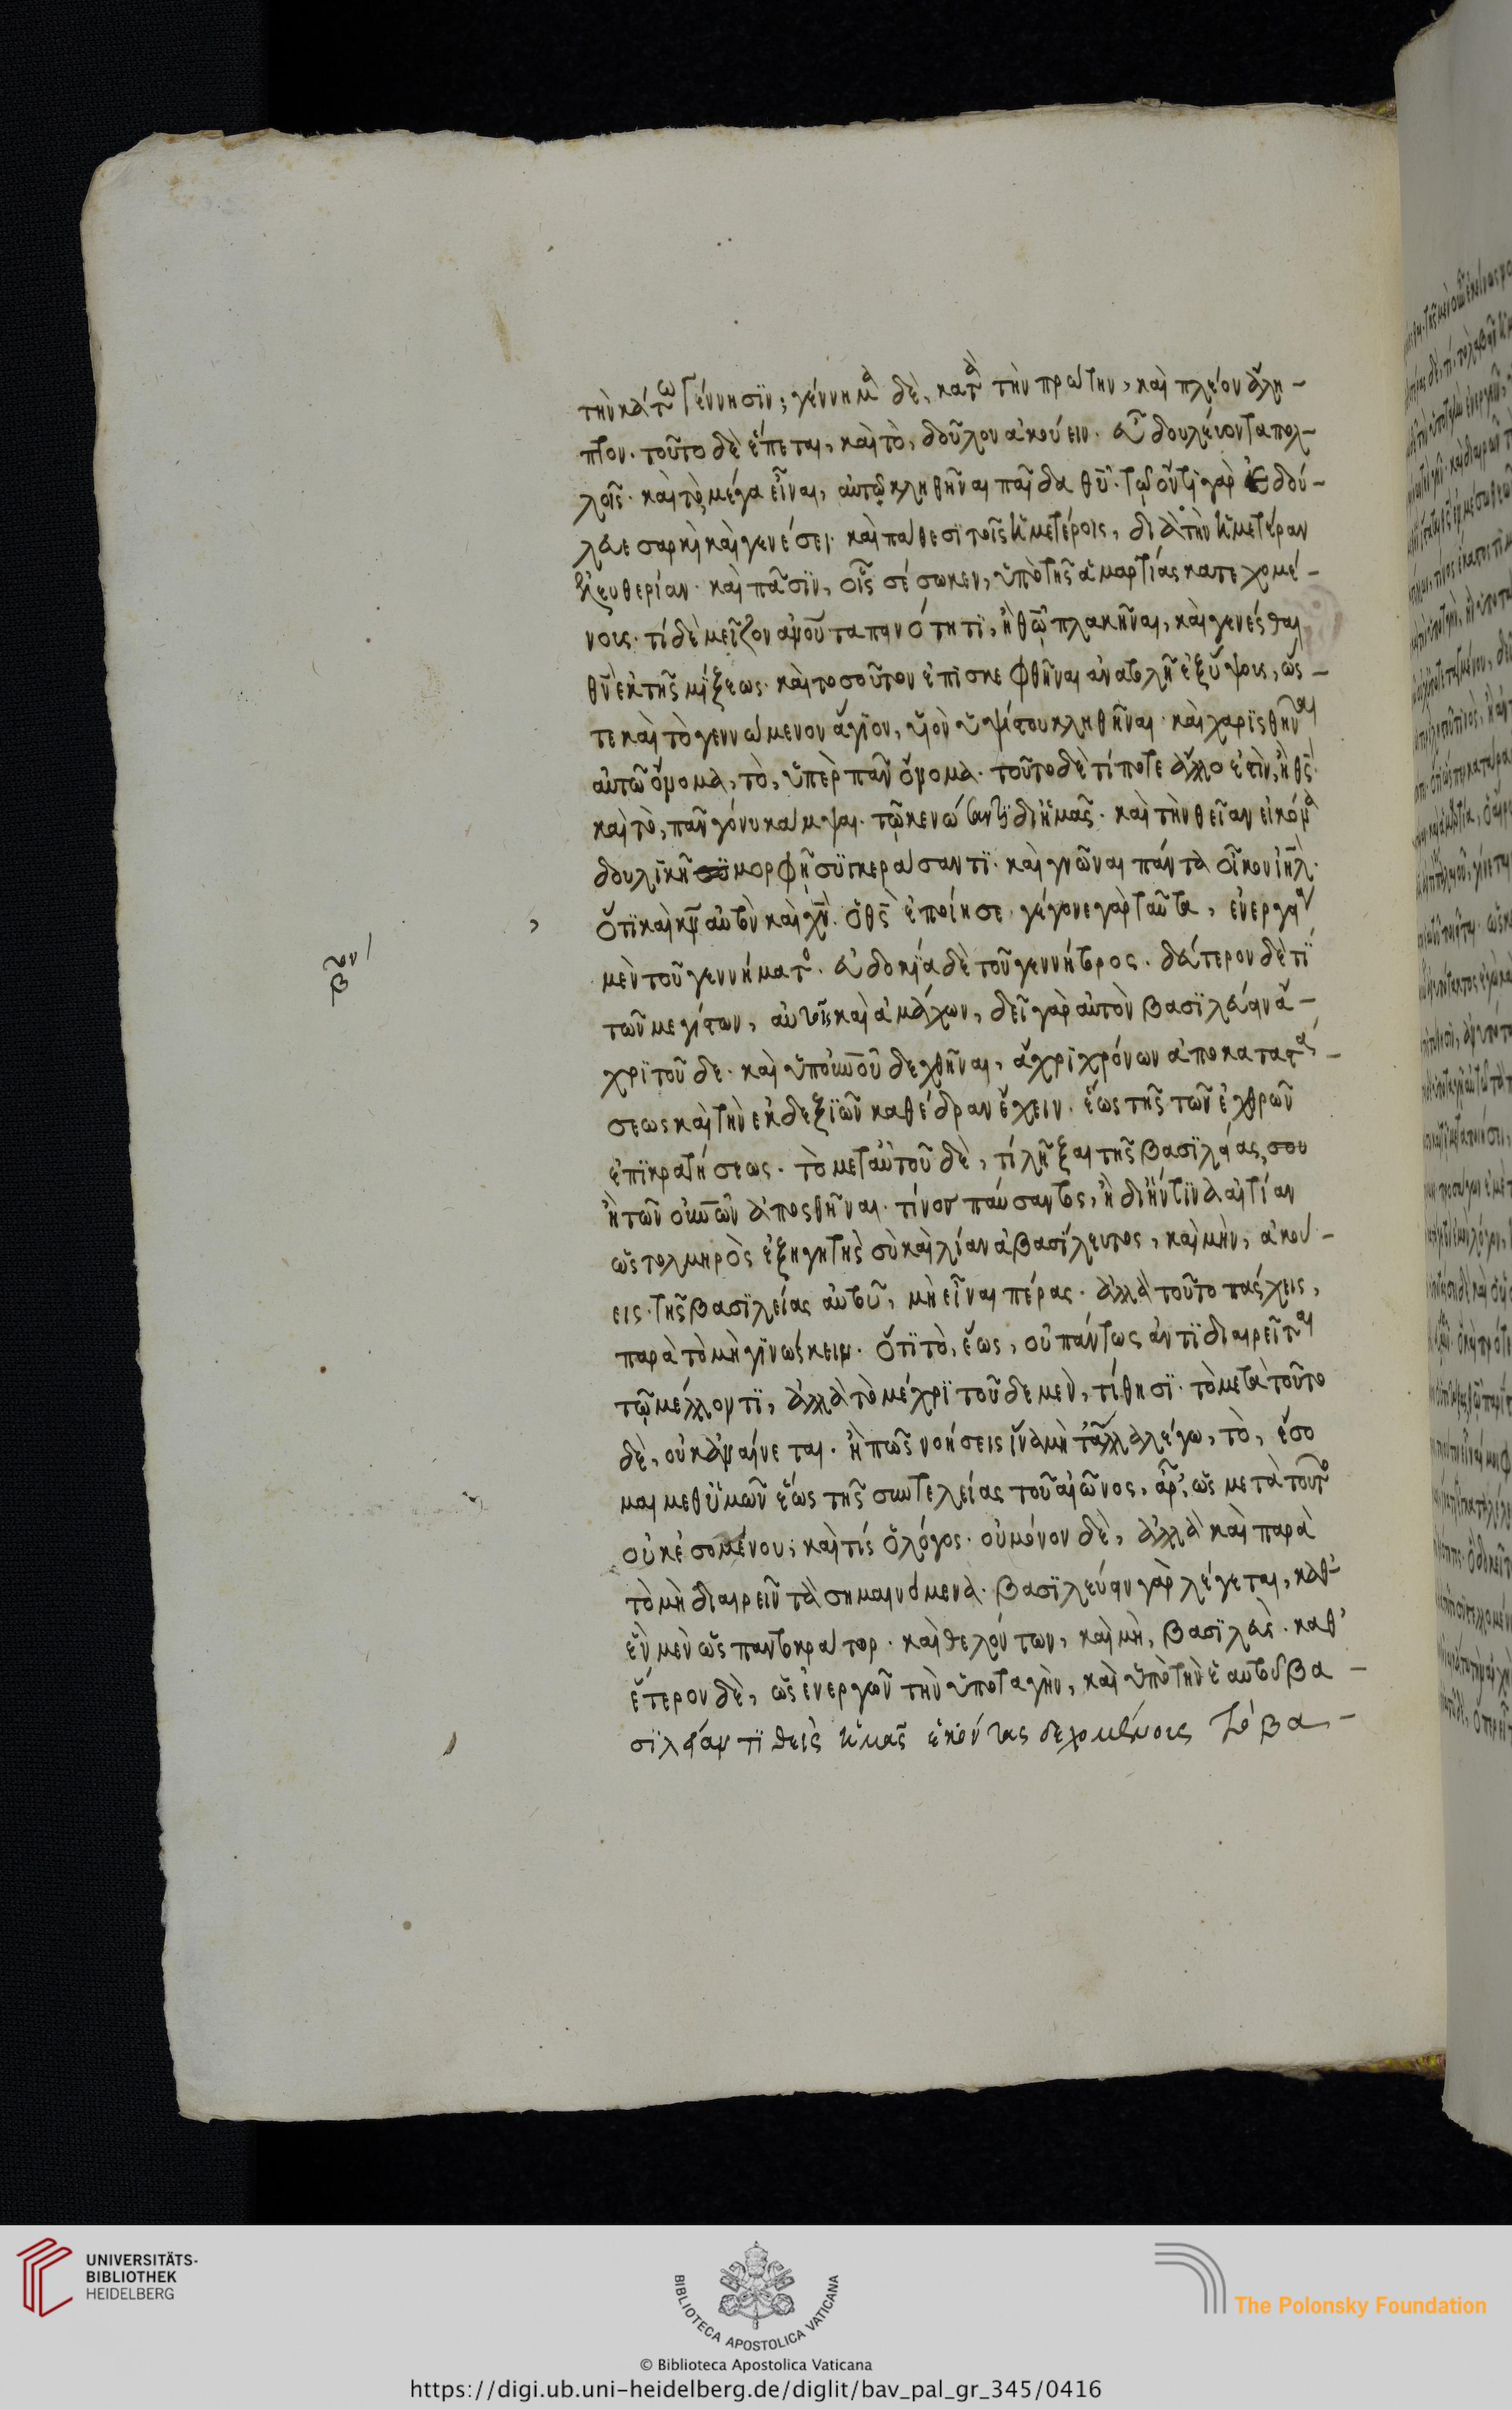 τὴν κάτω γέννησϊν; γέννημα δὲ, κατὰ τὴν πρώτην, καὶ πλέον ἄλη-
πτον. τοῦτο δὲ ἕπεται, καὶ τὸ, δοῦλον ἀκούειν. εὖ δουλεύοντα πολ-
λοῖς. καὶ τὸ μέγα εἶναι, αὐτῷ κληθῆναι παῖδα θῦ. τῷ ὄντι γὰρ ἐδού-
λευε σαρκὶ καὶ γενέσει καὶ πάθεσϊ τοῖς ἡμετέροις, διὰ τὴν ἡμετέραν
ἐλευθερίαν. καὶ πᾶσϊν, οἷς σέσωκεν, ὑπὸ τῆς ἁμαρτίας κατεχομέ-
νοις. τί δὲ μεῖζον ἀνοῦ ταπεινότητϊ, ἢ θῶ πλακῆναι, καὶ γενέσθαι
θν ἐκ τῆς μίξεως. καὶ τοσοῦτον ἐπϊσκεφθῆναι ἀνατολῇ ἐξ ὕψους, ὥς-
τε καὶ τὸ γεννώμενον ἅγϊον, υἱὸν ὑψίστου κληθῆναι. καὶ χαρϊσθῆναι
αὐτῶ ὄνομα, τὸ, ὑπὲρ πᾶν ὄνομα. τοῦτο δὲ τί ποτε ἄλλο ἐστὶν, ἢ θς.
καὶ τὸ, πᾶν γόνυ κάμψαι. τῷ κενώσαντϊ δι ἡμᾶς. καὶ τὴν θεῖαν εἰκόνα
δουλϊκῇ μορφῇ συϊκεράσαντϊ. καὶ γνῶναι πάντα οἶκον ἰηλ.
ὅτϊ καὶ κν αὐτὸν καὶ χν. ὁ θς ἐποίησε. γέγονε γὰρ ταῦτα, ἐνεργεία
μὲν τοῦ γεννήματο. εὐδοκϊα δὲ τοῦ γεννήτορος. δεύτερον δὲ τϊ
βον
τῶν μεγίστων, αὐτοῖς καὶ ἀμάχων, δεῖ γὰρ αὐτὸν βασϊλεύειν ἄ-
χρϊ τοῦ δε. καὶ ὑπ οὐνοῦ δεχθῆναι, ἄχρϊ χρόνων ἀποκαταστά-
σεως καὶ τὴν ἐκ δεξϊῶν καθέδραν ἔχειν. ἕως τῆς τῶν ἐχθρῶν
ἐπϊκρατήσεως. τὸ μετ αὐτοῦ δὲ, τί λῆξαι τῆς βασϊλείας, σου
ἢ τῶν οὐνῶν ἀποσθῆναι. τίνος παύσαντος, ἢ δι ἥντϊνα αἰτίαν
ὡς τολμηρὸς ἐξηγητὴς σὺ καὶ λίαν ἀβασίλευτος, καὶ μὴν, ἀκού-
εις. τῆς βασϊλείας αὐτοῦ, μὴ εἶναι πέρας. ἀλλὰ τοῦτο πάσχεις,
παρὰ τὸ μὴ γϊνώσκειν. ὅτϊ τὸ, ἕως, οὐ πάντως ἀντϊδιαιρεῖται
τῷ μέλλοντϊ, ἀλλὰ τὸ μέχρϊ τοῦ δε μὲν, τίθησϊ. τὸ μετὰ τοῦτο
δὲ, οὐκ ἀναίνεται. ἢ πῶς νοήσεις ἵνα μὴ τἄλλα λέγω, τὸ, ἔσο
μαι μεθ ὑμῶν ἕως τῆς συντελείας τοῦ αἰῶνος, ἆρ, ὡς μετὰ τοῦτο
οὐκ ἐσομένου; καὶ τίς ὁ λόγος. οὐ μόνον δὲ, ἀλλὰ καὶ παρὰ
τὸ μὴ διαιρεῖν τὰ σημαινόμενα. βασϊλεύειν γὰρ λέγεται, καθ
ἓν μὲν ὡς παντοκράτορ. καὶ θελόντων, καὶ μὴ, βασϊλεὺς. καθ
ἕτερον δὲ, ὡς ἐνεργῶν τὴν ὑποταγὴν, καὶ ὑπὸ τὴν ἑαυτοῦ βα-
σϊλείαν τϊθεὶς ἡμᾶς ἑκόντας δεχομένοις τὸ βα-
UNIVERSITÄTS-
BIBLIOTHEK
HEIDELBERG
BIBLIOTECA APOSTOLICA VATICANA
© Biblioteca Apostolica Vaticana
The Polonsky Foundation
https://digi.ub.uni-heidelberg.de/diglit/bav_pal_gr_345/0416